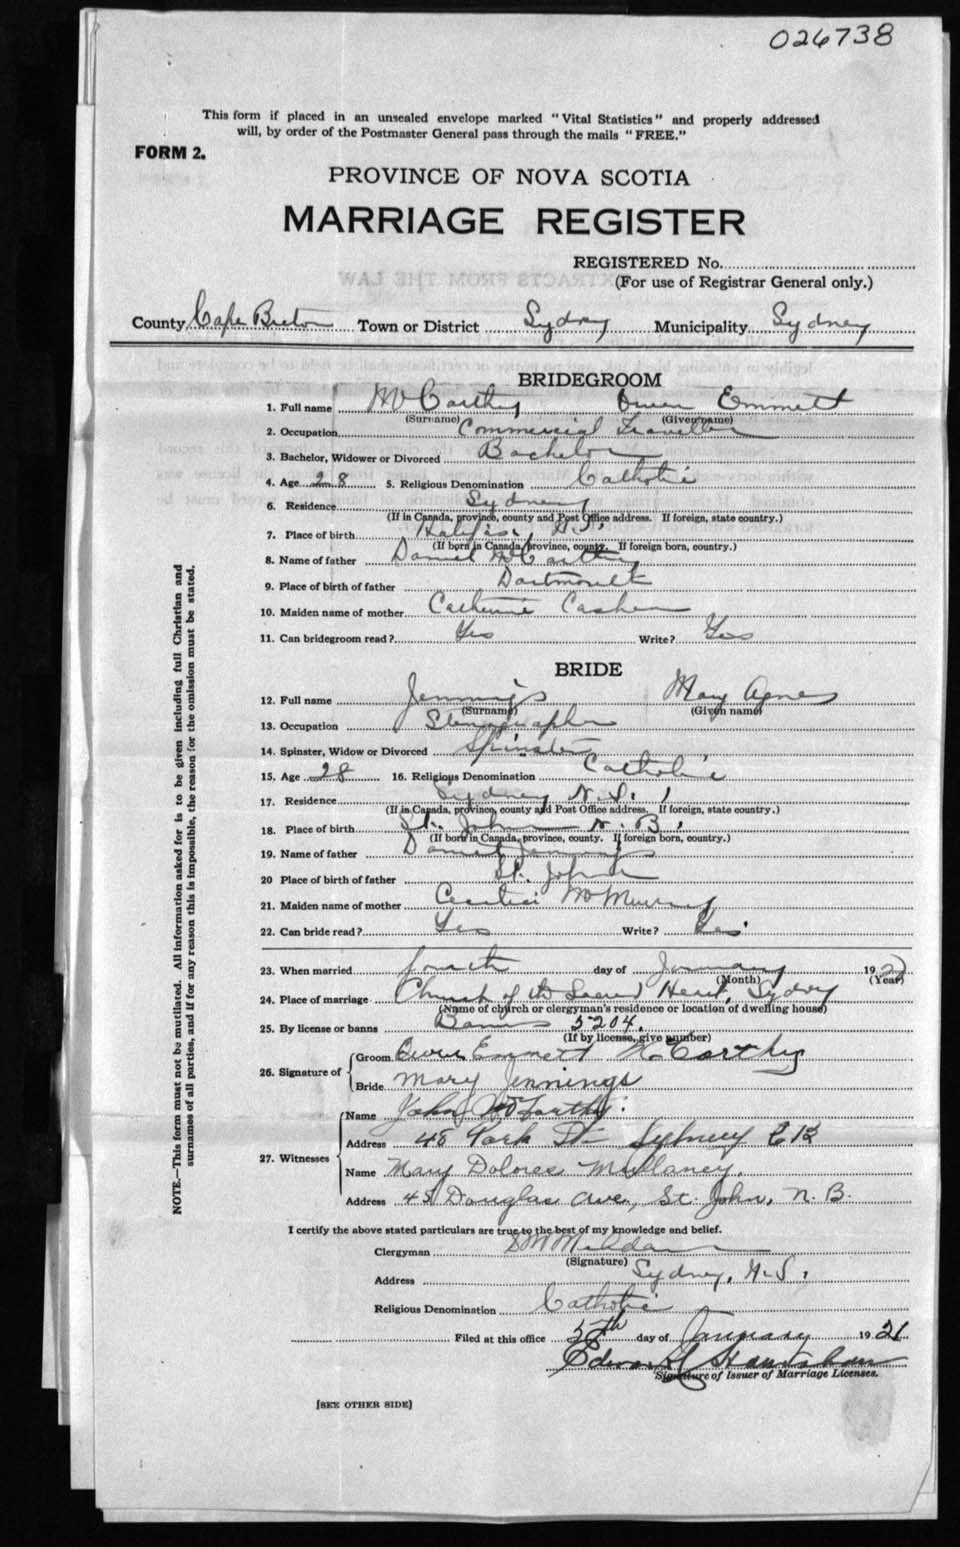 026738
This form if placed in an unsealed envelope marked "Vital Statistics" and properly addressed
will, by order of the Postmaster General pass through the mails "FREE."
FORM 2.
PROVINCE OF NOVA SCOTIA
MARRIAGE REGISTER
REGISTERED No.
(For use of Registrar General only.)
County Cape Breton Town or District Sydney Municipality Sydney
BRIDEGROOM
1. Full name McCarthy Owen Emmett
(Surname) (Given name)
2. Occupation Commercial Traveller
3. Bachelor, Widower or Divorced Bachelor
4. Age 28 5. Religious Denomination Catholic
6. Residence Sydney
(If in Canada, province, county and Post Office address. If foreign, state country.)
7. Place of birth Halifax, N.S.
(If born in Canada, province, county. If foreign born, country.)
8. Name of father Daniel McCarthy
9. Place of birth of father Dartmouth
10. Maiden name of mother Catherine
11. Can bridegroom read? Yes Write? Yes
BRIDE
12. Full name Jennings Mary Agnes
(Surname) (Given name)
13. Occupation Stenographer
14. Spinster, Widow or Divorced Spinster
15. Age 28 16. Religious Denomination Catholic
17. Residence Sydney N.S.
(If in Canada, province, county and Post Office address. If foreign, state country.)
18. Place of birth St. John N.B.
(If born in Canada, province, county. If foreign born, country.)
19. Name of father Daniel Jennings
20 Place of birth of father St. John
21. Maiden name of mother Cecelia McMurray
22. Can bride read? Yes Write? Yes
23. When married fourth day of January 192
(Month) (Year)
24. Place of marriage Church of the Sacred Heart, Sydney
(Name of church or clergyman's residence or location of dwelling house)
25. By license or banns Banns 5204.
(If by license, give number)
26. Signature of Groom Owen Emmett McCarthy
Bride Mary Jennings
27. Witnesses Name John McCarthy.
Address 48 York St Sydney CB
Name Mary Dolores Mullaney.
Address 45 Douglas Ave., St. John, N.B.
I certify the above stated particulars are true to the best of my knowledge and belief.
Clergyman
(Signature)
Address Sydney, N.S.
Religious Denomination Catholic
Filed at this office 5th day of January 1921
Edward
Signature of Issuer of Marriage Licenses.
[SEE OTHER SIDE]
NOTE.—This form must not be mutilated. All information asked for is to be given including full Christian and
surnames of all parties, and if for any reason this is impossible, the reason for the omission must be stated.